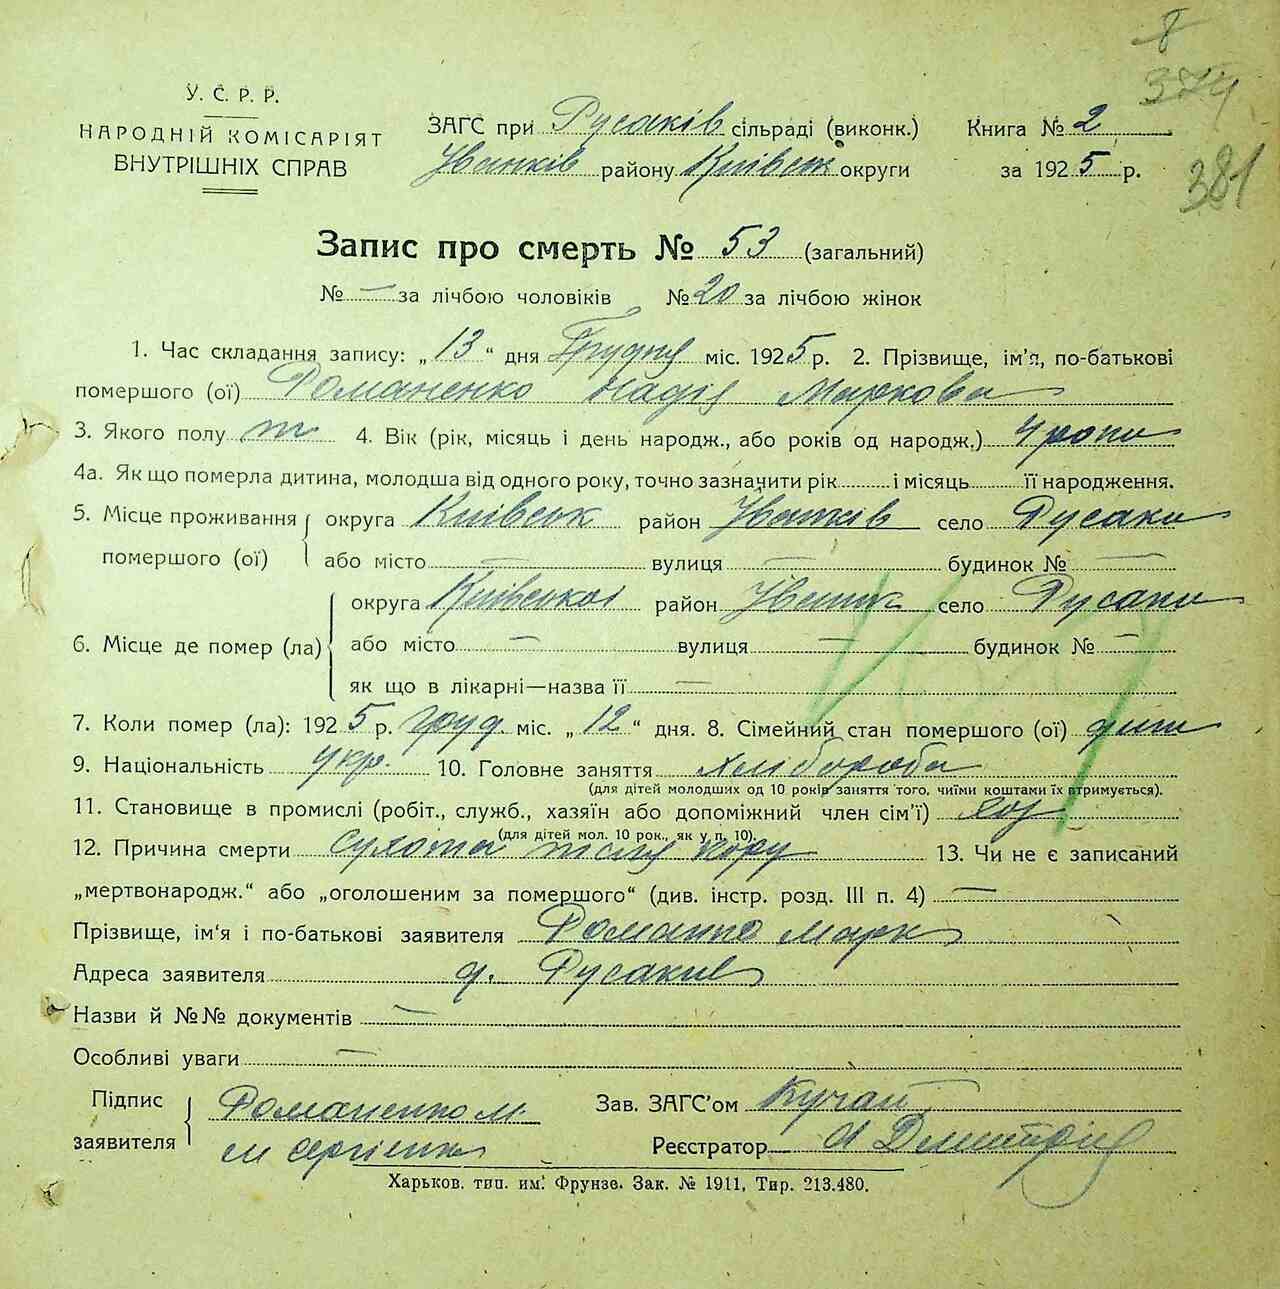 8
374
381
У. С. Р. Р.
НАРОДНІЙ КОМІСАРІЯТ
ВНУТРІШНІХ СПРАВ
ЗАГС при Русаків сільраді (виконк.) Книга № 2
Іванків району Київськ округи за 1925 р.
Запис про смерть № 53 (загальний)
№ — за лічбою чоловіків № 20 за лічбою жінок
1. Час складання запису: „13“ дня Грудня міс. 1925 р. 2. Прізвище, ім'я, по-батькові
помершого (ої) Романенко Надія Маркова
3. Якого полу ж 4. Вік (рік, місяць і день народж., або років од народж.) 4 роки
4а. Як що померла дитина, молодша від одного року, точно зазначити рік і місяць її народження.
5. Місце проживання помершого (ої) округа Київськ район Іванків село Русаки
або місто — вулиця — будинок № —
6. Місце де помер (ла) округа Київської район Іванк село Русаки
або місто — вулиця — будинок № —
як що в лікарні—назва її —
7. Коли помер (ла): 1925 р. груд. міс. „12“ дня. 8. Сімейний стан помершого (ої) дит
9. Національність укр. 10. Головне заняття Хлібороба
(для дітей молодших од 10 років заняття того, чиїми коштами їх втримується).
11. Становище в промислі (робіт., служб., хазяїн або допоміжний член сім'ї) хоз
(для дітей мол. 10 рок., як у п. 10).
12. Причина смерти сухота після кору 13. Чи не є записаний
„мертвонародж.“ або „оголошеним за помершого“ (див. інстр. розд. III п. 4) —
Прізвище, ім'я і по-батькові заявителя Марк
Адреса заявителя Русаки
Назви й №№ документів —
Особливі уваги —
Підпис заявителя Романенко м.
Зав. ЗАГС'ом Кучай
Реєстратор
Харьков. тип. им. Фрунзе. Зак. № 1911, Тир. 213.480.